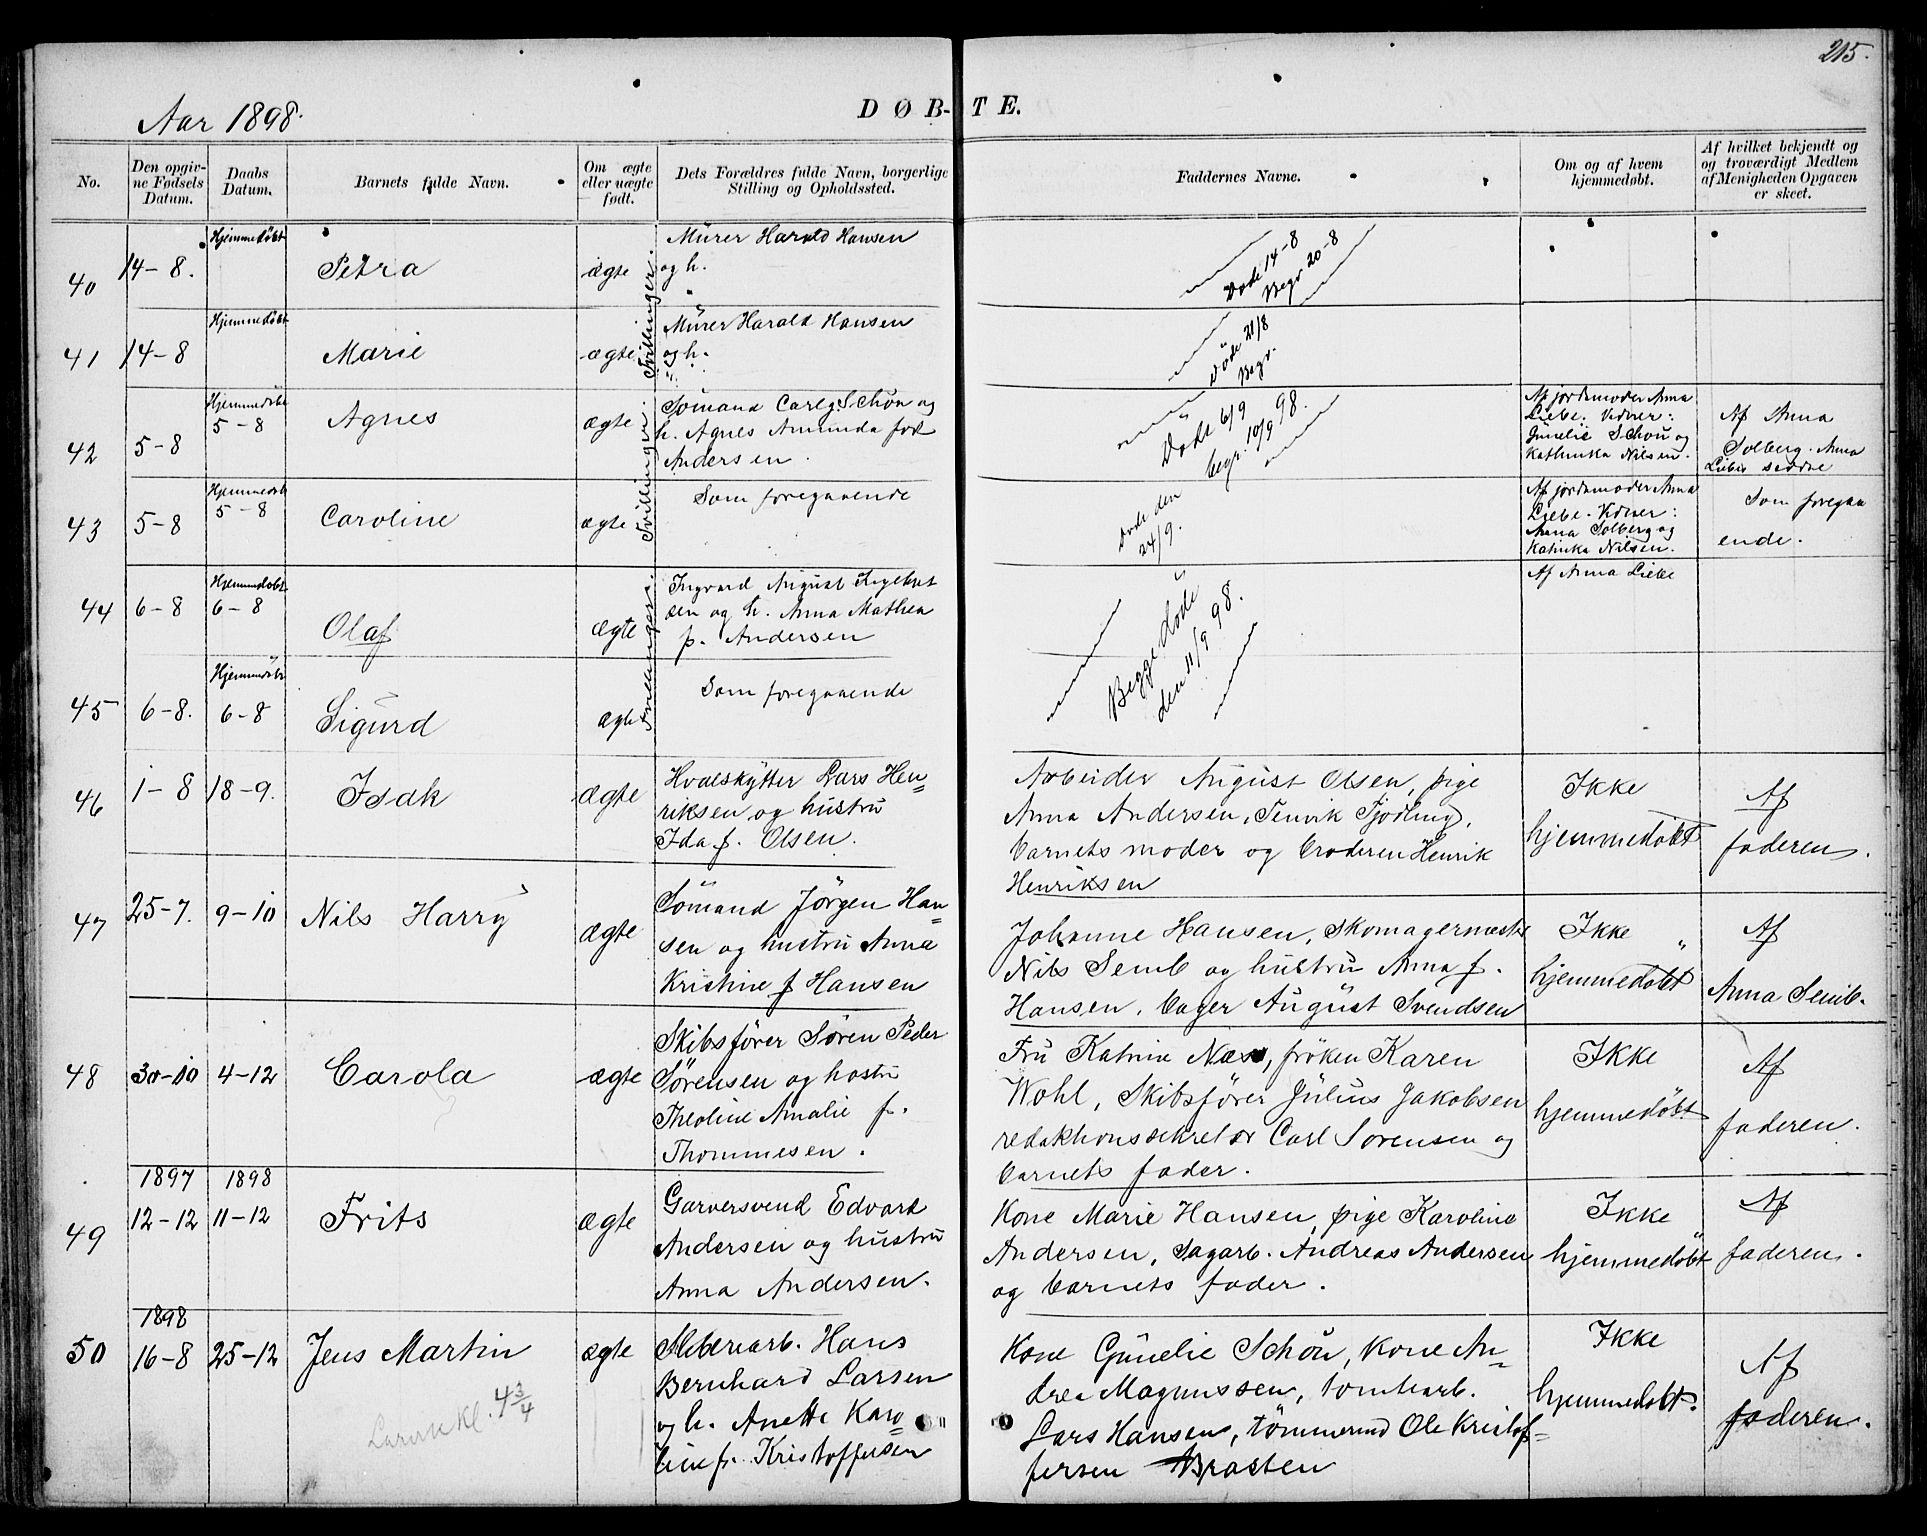 215.
Aar 1898.
DØB-TE.
No.
Den opgiv-
ne Fødsels
Datum.
Daabs
Datum.
Barnets fulde Navn.
Om ægte
eller uægte
født.
Dets Forældres fulde Navn, borgerlige
Stilling og Opholdssted.
Faddernes Navne.
Om og af hvem
hjemmedøbt.
Af hvilket bekjendt og
og troværdigt Medlem
af Menigheden Opgaven
er skeet.
40
14-8.
Hjemmedøbt
Petra
ægte
Tvillinger.
Murer Harald Hansen
og h.
Døde 14-8
Begr 20-8
41
14-8
Hjemmedøbt
Marie
ægte
Murer Harald Hansen
og h.
"
Døde 21/8
Begr.
42
5-8
Hjemmedøbt
5-8
Agnes
ægte
Tvillinger.
Sömand Carl Schøn og
h. Agnes Amunda fød
Andersen.
Döde 6/9
begr. 10/9 98.
Af jordemoder Anna
Liebe. Vidner:
Gunelie Schou og
Kathinka Nilsen.
Af Anna
Solberg. Anna
Liebes seddel
43
5-8
Hjemmedøbt
5-8
Caroline
ægte
Som foregaaende
Døde den
24/9.
Af jordemoder Anna
Liebe. Vidner:
Anna Solberg og
Katinka Nilsen.
Som foregaa
ende.
44
6-8
Hjemmedøbt
6-8
Olaf
ægte
Tvillinger.
Ingvard August Ingebret
sen og h. Anna Mathea
f. Andersen
Begge döde
den 11/9 98.
Af Anna Liebe
45
6-8.
Hjemmedøbt
6-8
Sigurd
ægte
Som foregaaende
46
1-8
18-9.
Isak
ægte
Hvalskytter Lars Hen
riksen og hustru
Ida f. Olsen.
Arbeider August Olsen, pige
Anna Andersen, Tenvik Tjodling,
barnets moder og broderen Henrik
Henriksen
Ikke
hjemmedøbt
Af
faderen.
47
25-7.
9-10
Nils Harry
ægte
Sömand Jörgen Han
sen og hustru Anna
Kristine f Hansen
Johanne Hansen, Skomagermester
Nils Semb og hustru Anna f.
Hansen, bager August Svendsen
Ikke
hjemmedøbt
Af
Anna Semb.
48
30-10
4-12
Carola
ægte
Skibsförer Sören Peder
Sörensen og hustru
Theoline Amalie f.
Thommesen.
Fru Katrine Næss, fröken Karen
Wohl, Skibsförer Julius Jakobsen
redaktionssekretær Carl Sorensen og
barnets fader.
Ikke
hjemmedøbt
Af
faderen.
49
1897
12-12
1898
11-12
Frits
ægte
Garversvend Edvard
Andersen og hustru
Anna Andersen.
Kone Marie Hansen, pige Karoline
Andersen, Sagarb. Andreas Andersen
og barnets fader.
Ikke
hjemmedøbt
Af
faderen.
50
1898
16-8
25-12
Jens Martin
ægte
Sliberiarb. Hans
Bernhard Larsen
og h. Anette Karo
line f. Kristoffersen
Kone Gunelie Schøn, kone An
drea Magnussen, tomtearb.
Lars Hansen, tömmermd Ole Kristof
fersen Brasten
Ikke
hjemmedøbt.
Af
faderen.
4 3/4